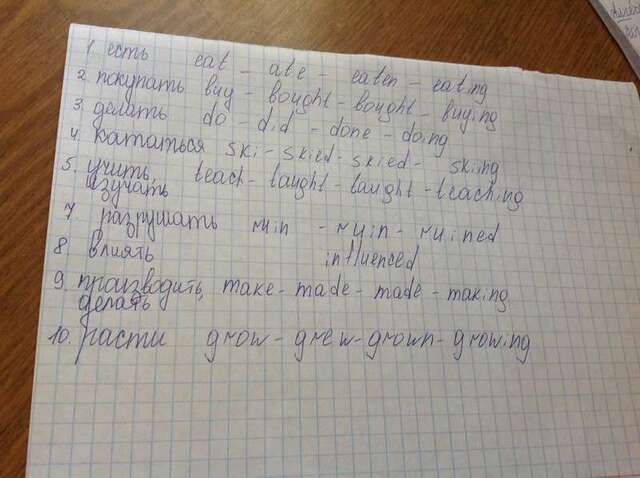 1. есть eat - ate - eaten - eating
2. покупать buy - bought - bought - buying
3. делить do - did - done - doing
4. кататься ski - skied - skied - skiing
5. учить, teach - taught - taught - teaching
изучать
7. разрушать ruin - ruin - ruined
8. влиять influenced
9. производить, make - made - made - making
делать
10. расти grow - grew - grown - growing